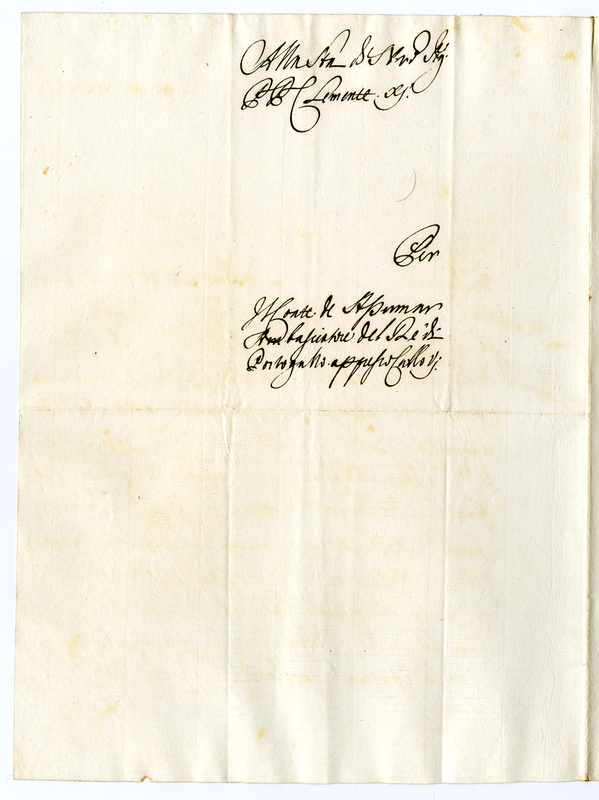 Alla Stà di Nrō Sig.
P.P. Clemente XI.
Per
Il Conte de Assumar
Ambasciatore del Rè di
Portogallo appresso Carlo VI.